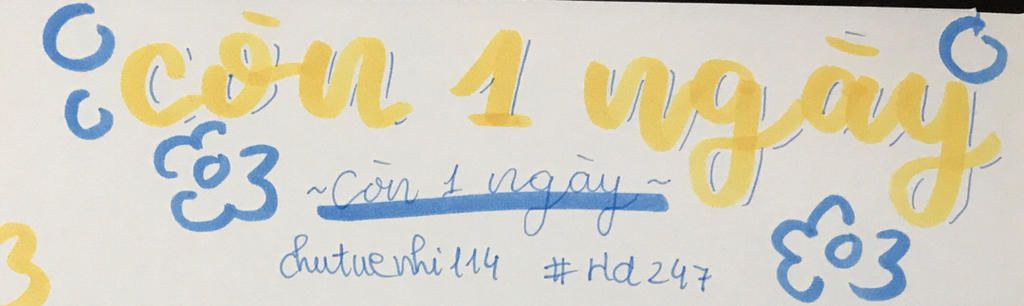 còn 1 ngày
~còn 1 ngày~
chutuenhi114 #Hd247